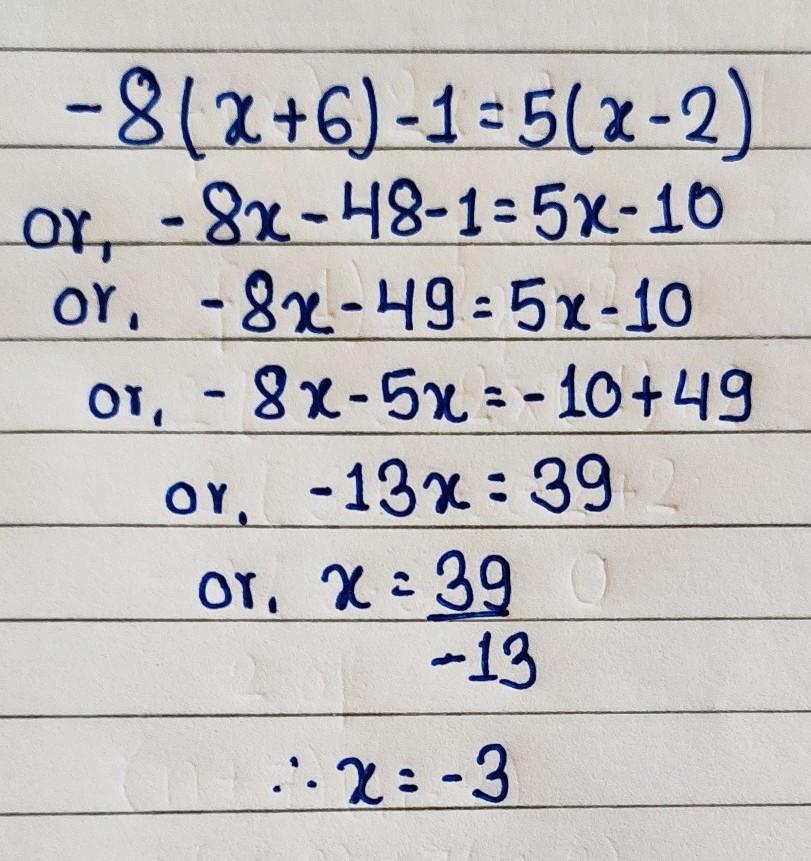 -8(x+6)-1=5(x-2)
or, -8x-48-1=5x-10
or, -8x-49=5x-10
or, -8x-5x=-10+49
or, -13x=39
or, x=39
-13
∴ x=-3